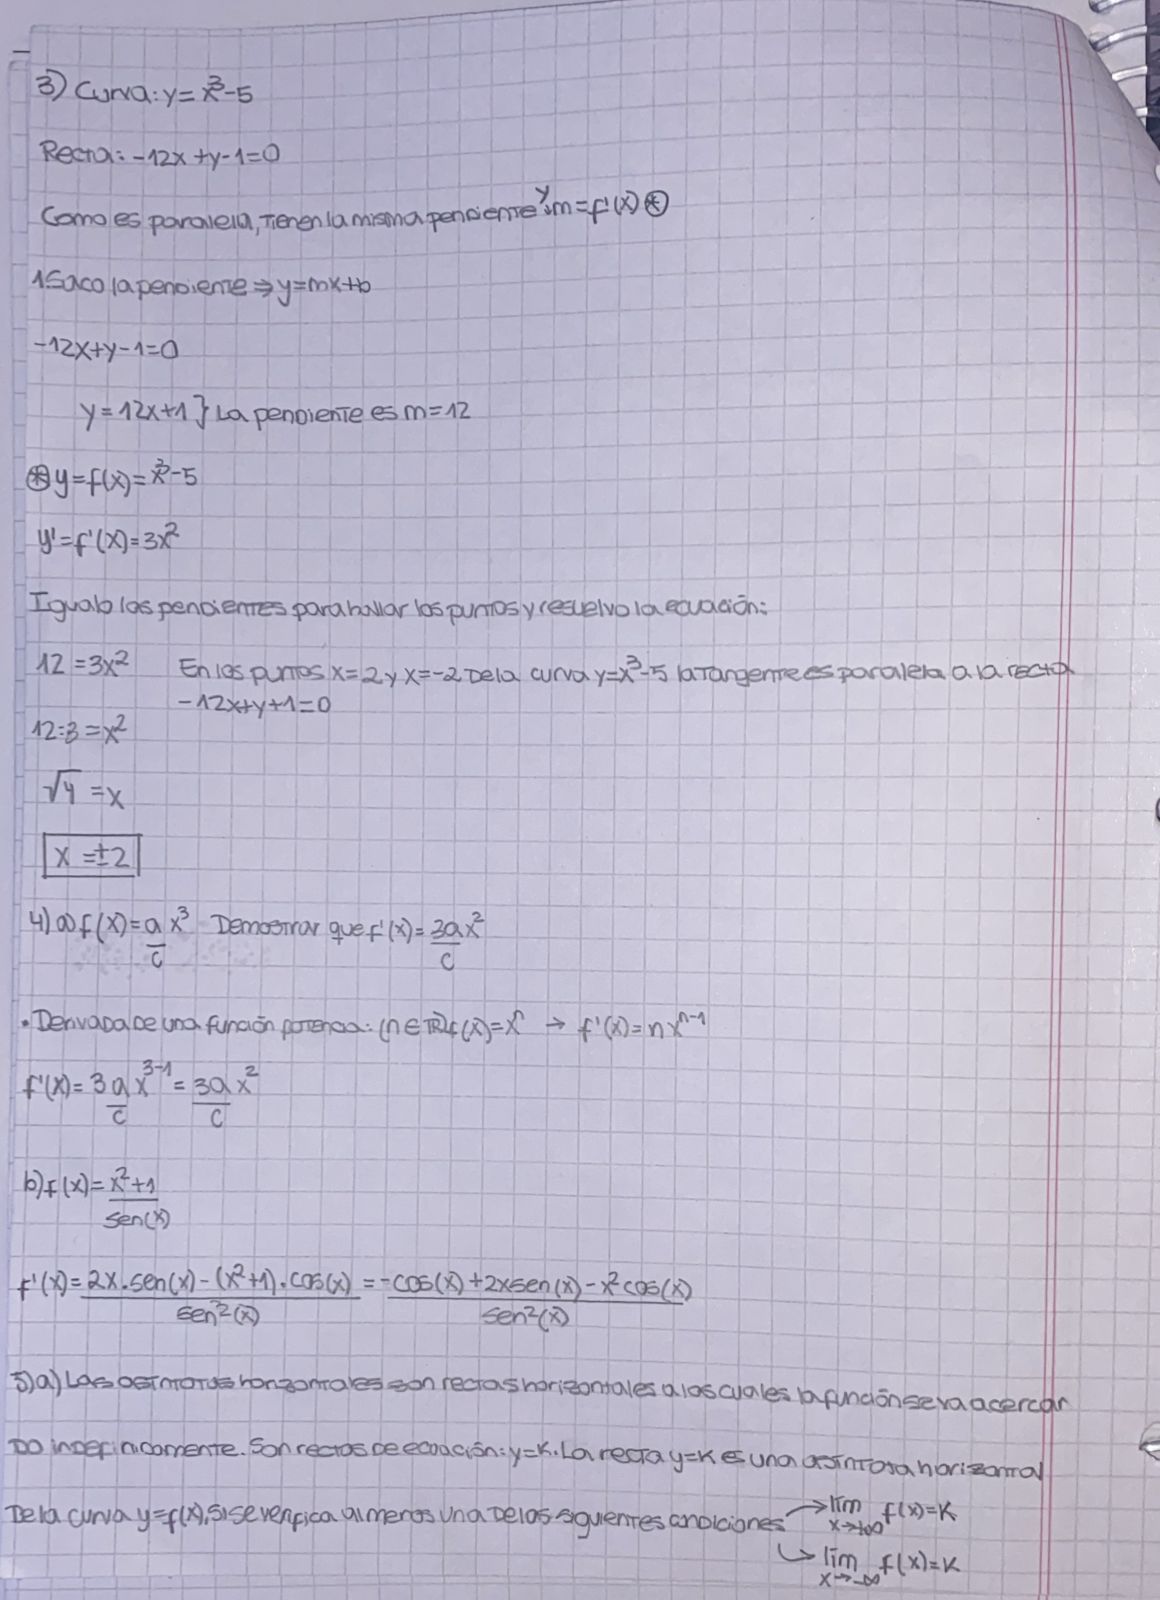 3) Curva: y = x³-5
Recta: -12x+y-1=0
Como es paralela, tienen la misma pendiente y m = f'(x) ⊛
1 Saco la pendiente ⇒ y=mx+b
-12x+y-1=0
y = 12x+1 } La pendiente es m=12
⊛ y=f(x)=x³-5
y'=f'(x)=3x²
Igualo las pendientes para hallar los puntos y resuelvo la ecuación:
12 = 3x² En los puntos x=2 y x=-2 de la curva y=x³-5 la tangente es paralela a la recta
-12x+y+1=0
12:3 = x²
√4 = x
x = ±2
4) a) f(x) = a/c x³ Demostrar que f'(x) = 3a/c x²
• Derivada de una función potencia: (n∈ℝ) f(x)=xⁿ → f'(x)=nxⁿ⁻¹
f'(x) = 3 a/c x³⁻¹ = 3a/c x²
b) f(x) = x²+1 / sen(x)
f'(x) = 2x.sen(x) - (x²+1).cos(x) / sen²(x) = -cos(x)+2xsen(x)-x²cos(x) / sen²(x)
5) a) Las asíntotas horizontales son rectas horizontales a las cuales la función se va acercan
do indefinidamente. Son rectas de ecuación: y=k. La recta y=k es una asíntota horizontal
de la curva y=f(x), si se verifica al menos una de las siguientes condiciones → lim x→+∞ f(x)=k
↳ lim x→-∞ f(x)=k